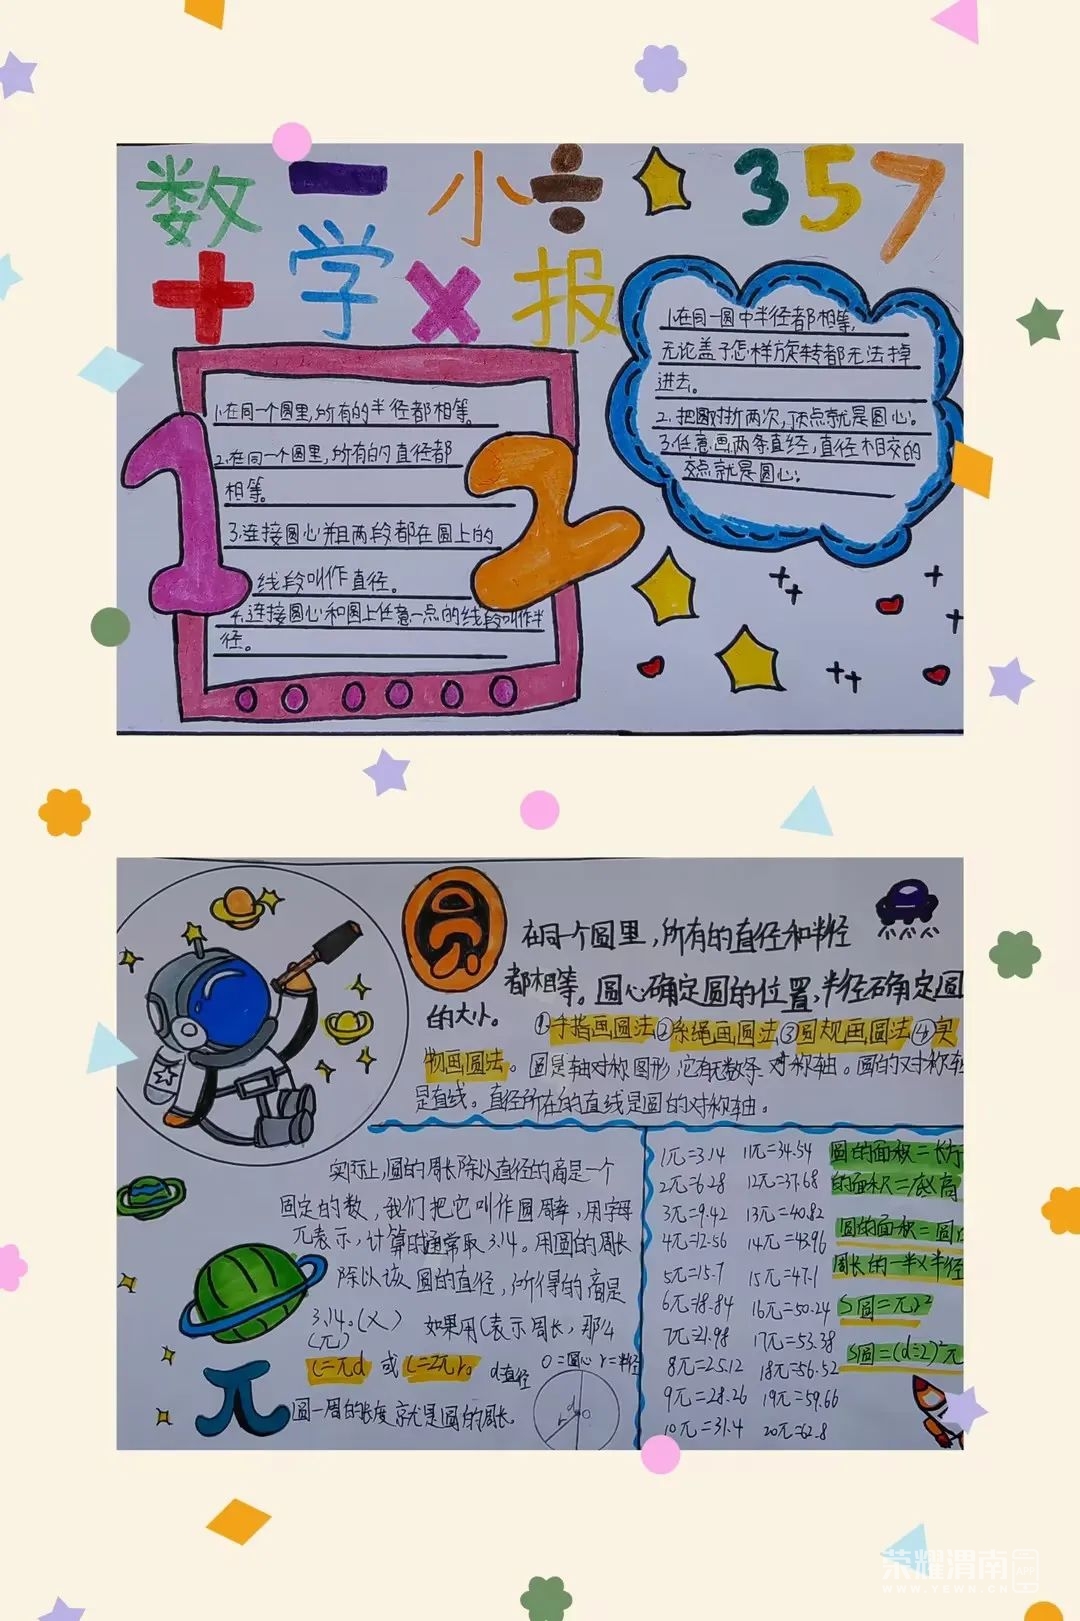 数一小÷357
+学×报
1.在同一个圆里,所有的半径都相等。
2.在同一个圆里,所有的直径都
相等。
3.连接圆心并且两段都在圆上的
线段叫作直径。
4.连接圆心和圆上任意一点的线段叫作半
径。
1
2
1.在同一圆中半径都相等,
无论盖子怎样旋转都无法掉
进去。
2.把圆对折两次,顶点就是圆心。
3.任意画两条直经,直径相交的
交点就是圆心。
圆
在同一个圆里,所有的直径和半径
都相等。圆心确定圆的位置,半径确定圆
的大小。①手指画圆法②系绳画圆法③圆规画圆法④实
物画圆法。圆是轴对称图形,它有无数条对称轴。圆的对称轴
是直线。直径所在的直线是圆的对称轴。
实际上,圆的周长除以直径的商是一个
固定的数,我们把它叫作圆周率,用字母
π表示,计算时通常取3.14。用圆的周长
除以该圆的直径,所得的商是
3.14。(×)
(π)
如果用C表示周长,那么
C=πd 或 C=2πr。
d直径
O=圆心 r=半径
圆一周的长度就是圆的周长。
π
1π=3.14 11π=34.54
2π=6.28 12π=37.68
3π=9.42 13π=40.82
4π=12.56 14π=43.96
5π=15.7 15π=47.1
6π=18.84 16π=50.24
7π=21.98 17π=53.38
8π=25.12 18π=56.52
9π=28.26 19π=59.66
10π=31.4 20π=62.8
圆的面积=长方
的面积=底×高
圆的面积=圆
周长的一半×半径
S圆=πr²
S圆=(d÷2)²π
荣耀渭南
APP
WWW.YEWN.CN